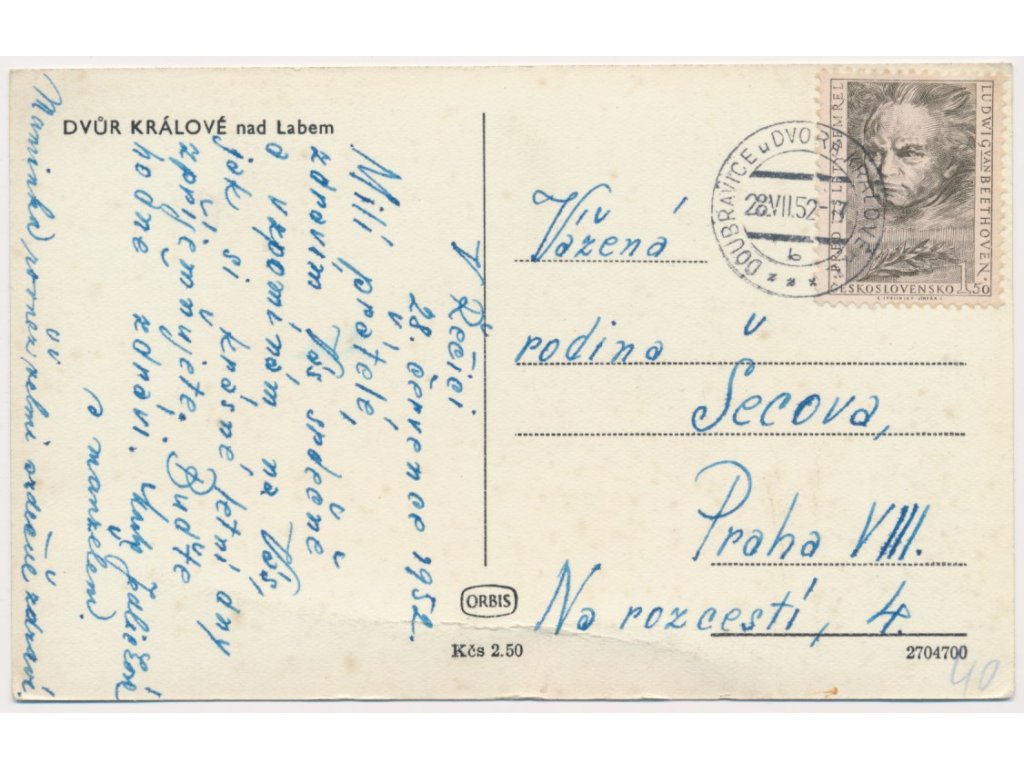 DVŮR KRÁLOVÉ nad Labem
V Řečici
28. července 1952.
Milí přátelé,
zdravím Vás srdečně
a vzpomínám na Vás,
jak si v krásné letní dny
zpříjemňujete. Buďte
hodně zdrávi.
s manželem.
Maminka rovněž velmi srdečně zdraví.
Vážená
rodina
Šecova,
Praha VIII.
Na rozcestí, 4.
DOUBRAVICE u DVORA KRÁLOVÉ
28.VII.52-17
b
PŘED 125 LETY ZEMŘEL
LUDWIG VAN BEETHOVEN
ČESKOSLOVENSKO 1,50
ORBIS
Kčs 2.50
2704700
40